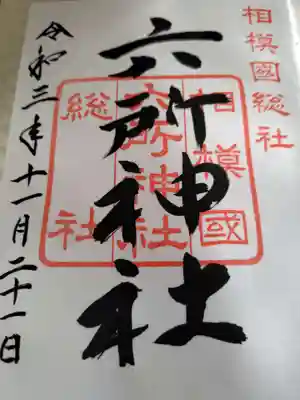 相模國総社
相模國
六所神社
総社
六所神社
令和三年十一月二十一日